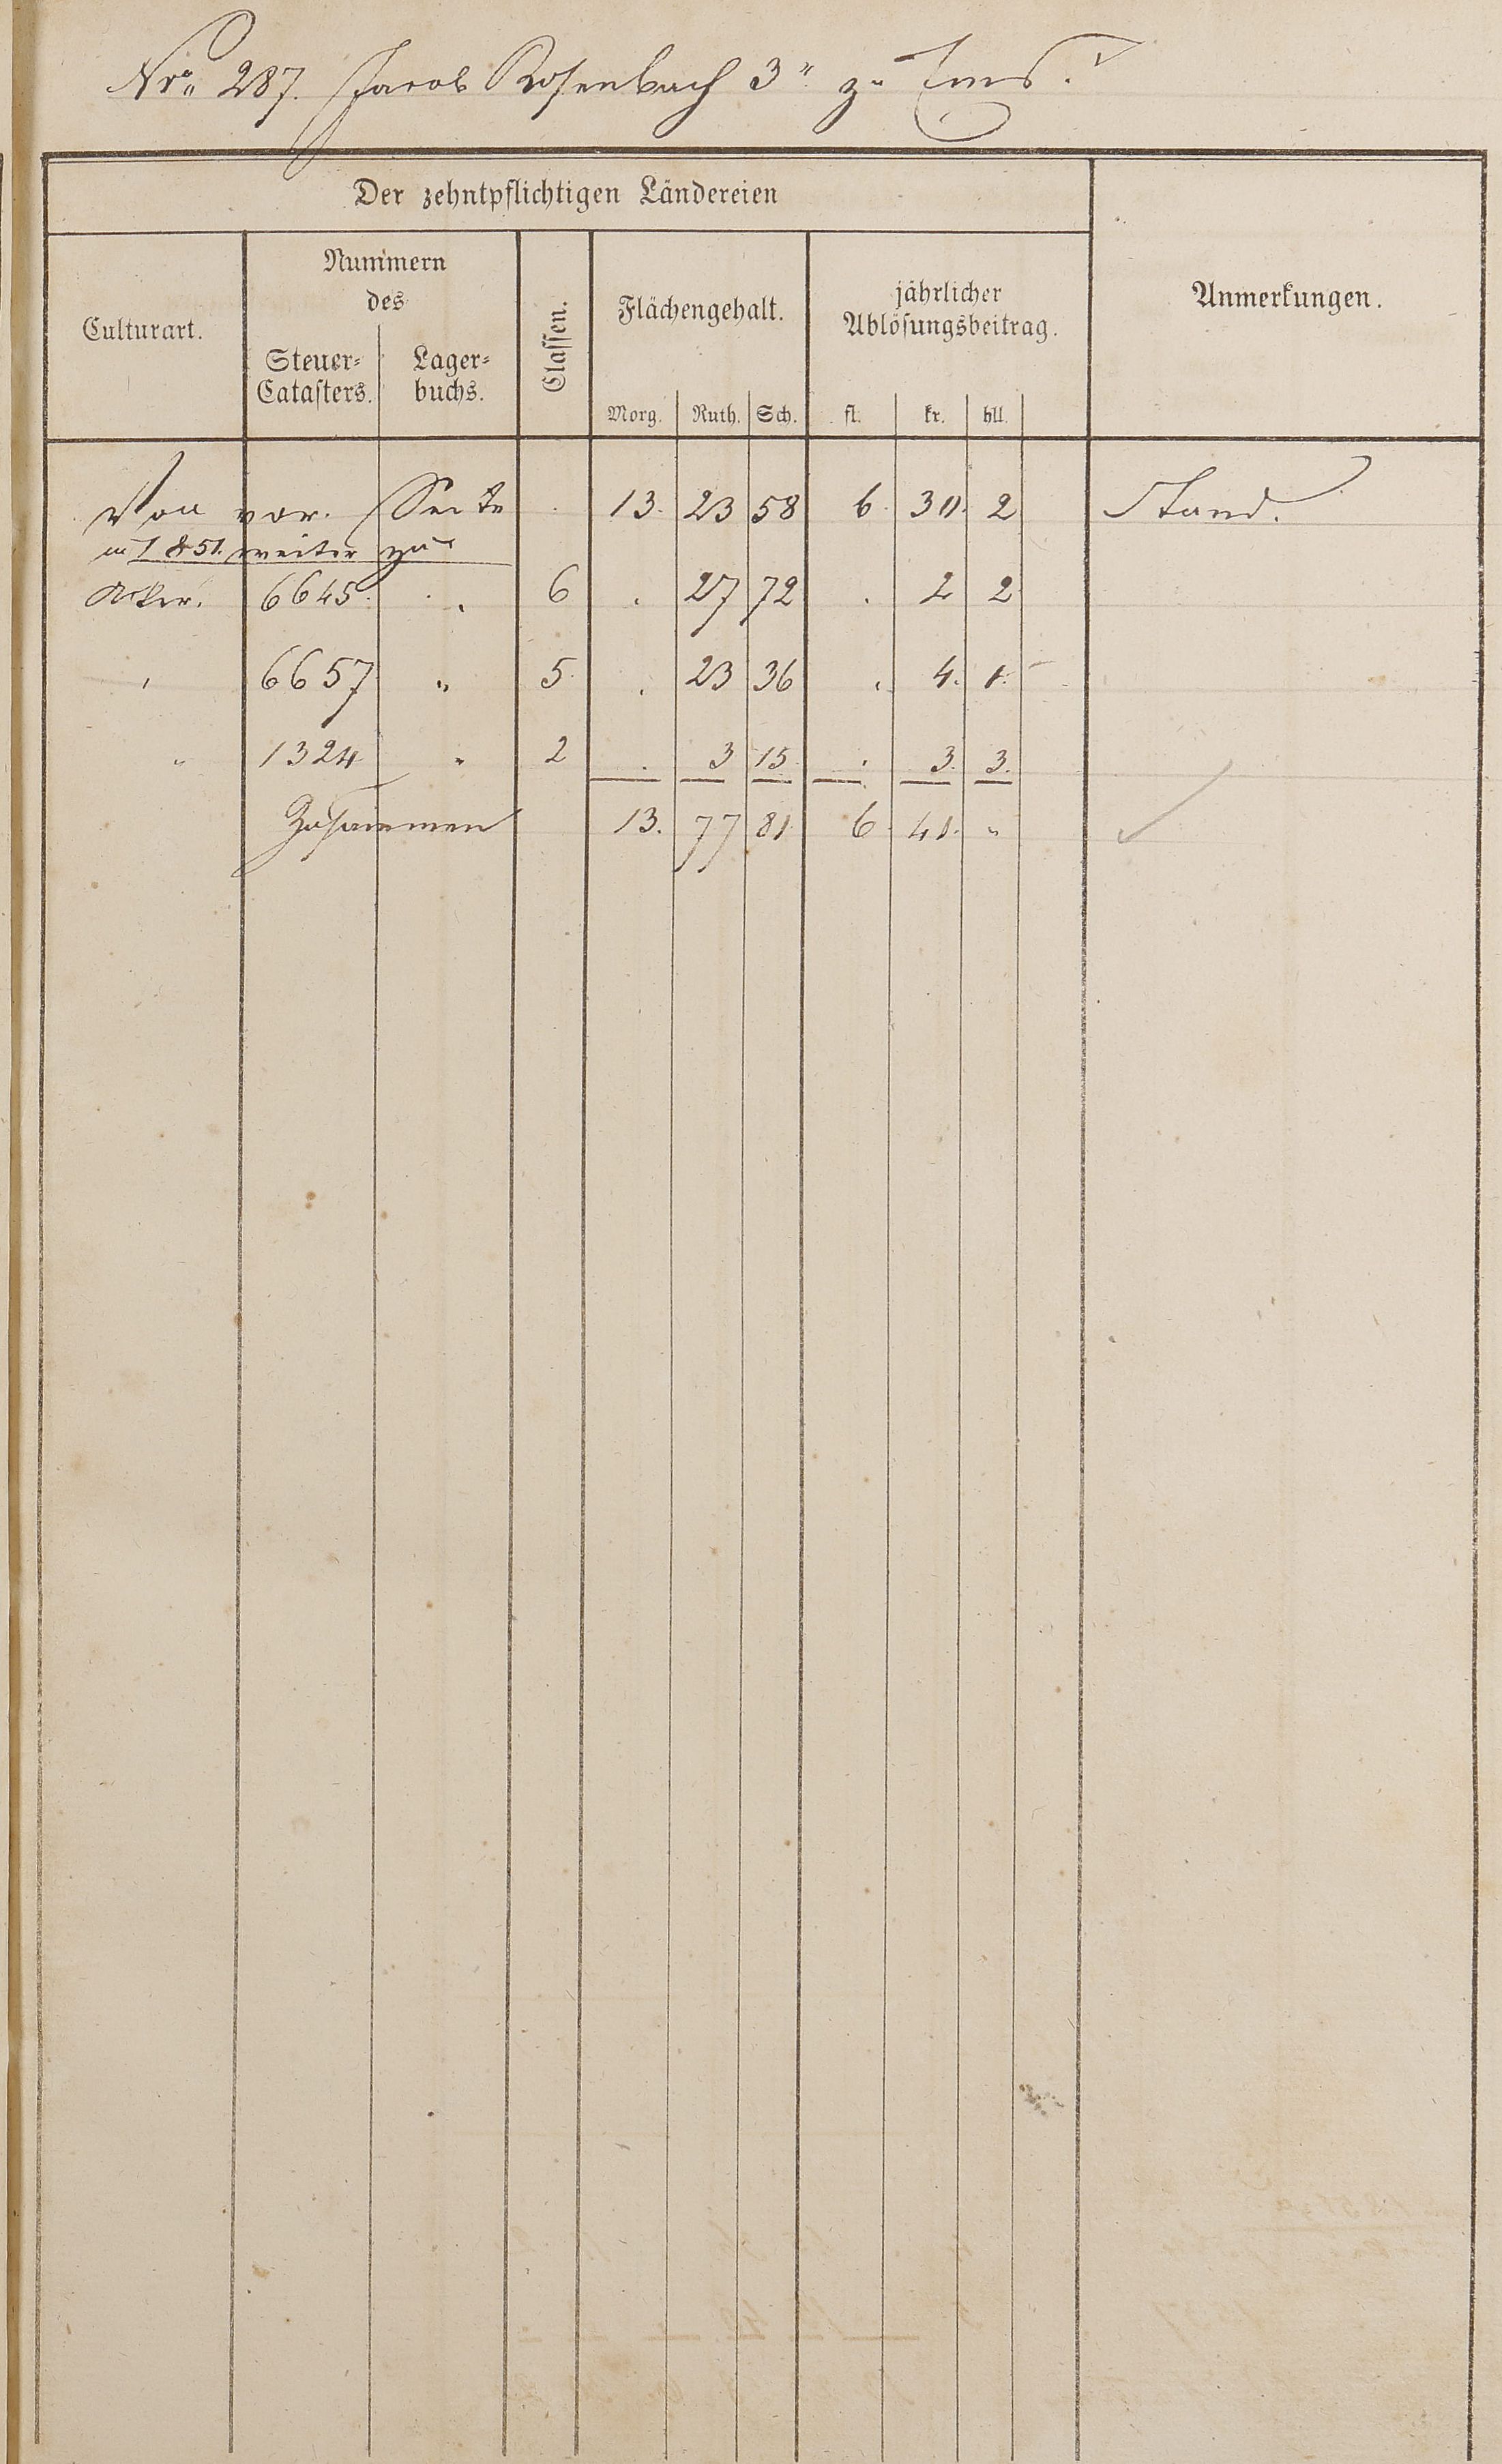 Nro 287. Jacob Rosenbach 3r zu Ems.
Der zehntpflichtigen Ländereien
Culturart.
Nummern
des
Steuer-
Catasters.
Lager-
buchs.
Classen.
Flächengehalt.
Morg. Ruth. Sch.
jährlicher
Ablösungsbeitrag.
fl. kr. hll.
Anmerkungen.
Von vor. Seite . 13. 23 58 6. 30. 2 Stand.
in 1851. weiter zu
Acker. 6645. " 6 . 27 72 . 2 2
" 6657 " 5 . 23 36 . 4. 1.
" 1324 " 2 . 3 15 . 3. 3.
Zusammen 13. 77 81 6 41. "